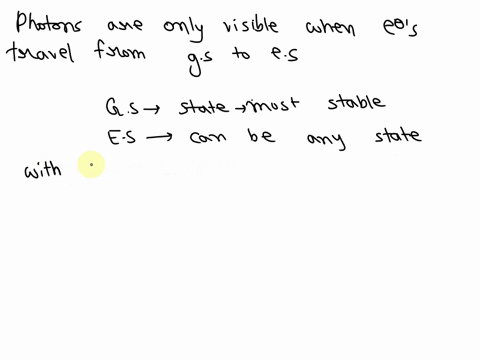 Photons are only visible when e⊖'s
travel from g.s to e.s
G.S → state → most stable
E.S → can be any state
with